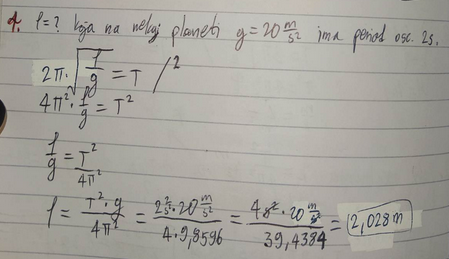 4. l=? koja na nekoj planeti g=20 m/s² ima period osc. 2s.
2π·√(l/g) = T /²
4π²·l/g = T²
l/g = T²/4π²
l = T²·g/4π² = 2²s²·20 m/s²/4·9,8596 = 4s²·20 m/s²/39,4384 = 2,028m